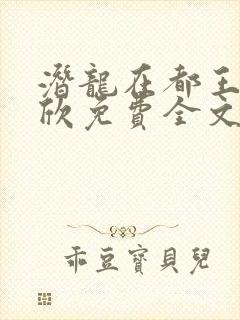 潛龍在都王
欣免費全文
乖豆寶貝兒